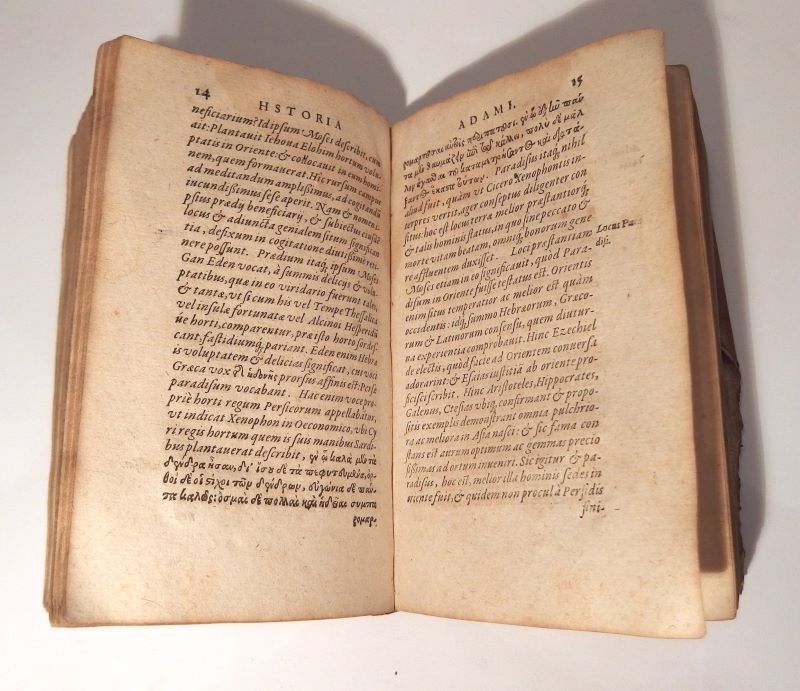 14
HSTORIA
neficiarium? Id ipsum Moses describit, cum
ait: Plantauit Iehoua Elohim hortum volu-
ptatis in Oriente: & collocauit in eum homi-
nem, quem formauerat. Hic rursum campus
ad meditandum amplißimus, ad cogitandū
iucundißimus sese aperit. Nam & nomen i-
psius prædij beneficiarij, & subiectus eius sit⁹
locus & adiuncta genialem situm significan
tia, defixum in cogitatione diutißime reti-
nere possunt. Prædium itaq́; ipsum Moses
Gan Eden vocat, à summis delicijs & volu-
ptatibus, quæ in eo viridario fuerunt tales,
& tantæ, vt si cum his vel Tempe Thessalica
vel insulæ fortunatæ vel Alcinoi Hesperidū
úe horti, comparentur, præ isto horto sordes-
cant; fastidiumq́; pariant. Eden enim Hebræ
is voluptatem & delicias significat, cui voci
Græca vox ἡ ἡδονὴ prorsus affinis est: Persæ
paradisum vocabant. Hac enim voce pro-
priè horti regum Persicorum appellabātur,
vt indicat Xenophon in Oeconomico, vbi Cy
ri regis hortum quem is suis manibus Sardi-
bus plantauerat describit, ἐν ᾧ καλὰ μὲν τὰ
δένδρα ἦσαν, δι' ἴσου δὲ τὰ πεφυτευμένα, ὀρ-
θοὶ δὲ οἱ στίχοι τῶν δένδρων, εὐγώνια δὲ πάν-
τα καλῶς: ὀσμαὶ δὲ πολλαὶ καὶ ἡδεῖαι συμπα
ρομαρ-
15
ADAMI.
ρομαρτοῦσαι
aliud fuit, quàm vt Cicero Xenophontis in-
terpres vertit, ager conseptus diligenter con
situs: hoc est locus terra melior præstantiorq́;
& talis hominis status, in quo sine peccato &
morte vitam beatam, omniq́; bonorum gene
re affluentem duxisset. Loci præstantiam
Moses etiam in eo significauit, quòd Para-
disum in Oriente fuisse testatus est. Orientis
enim situs temperatior ac melior est quàm
occidentis: idq́; summo Hebræorum, Græco-
rum & Latinorum consensu, quem diutur-
na experientia comprobauit. Hinc Ezechiel
de electis, quòd facie ad Orientem conuersa
adorarint: & Esaias iustitiā ab oriente pro-
ficisci scribit. Hinc Aristoteles, Hippocrates,
Galenus, Ctesias vbiq́; confirmant & propo-
sitis exemplis demonstrant omnia pulchrio-
ra ac meliora in Asia nasci: & sic fama con
stans est aurum optimum ac gemmas precio
sißimas ad ortum inueniri. Sic igitur & pa-
radisus, hoc est, melior illa hominis sedes in
oriente fuit, & quidem non procul à Persidis
fini-
Locus Para
disi.